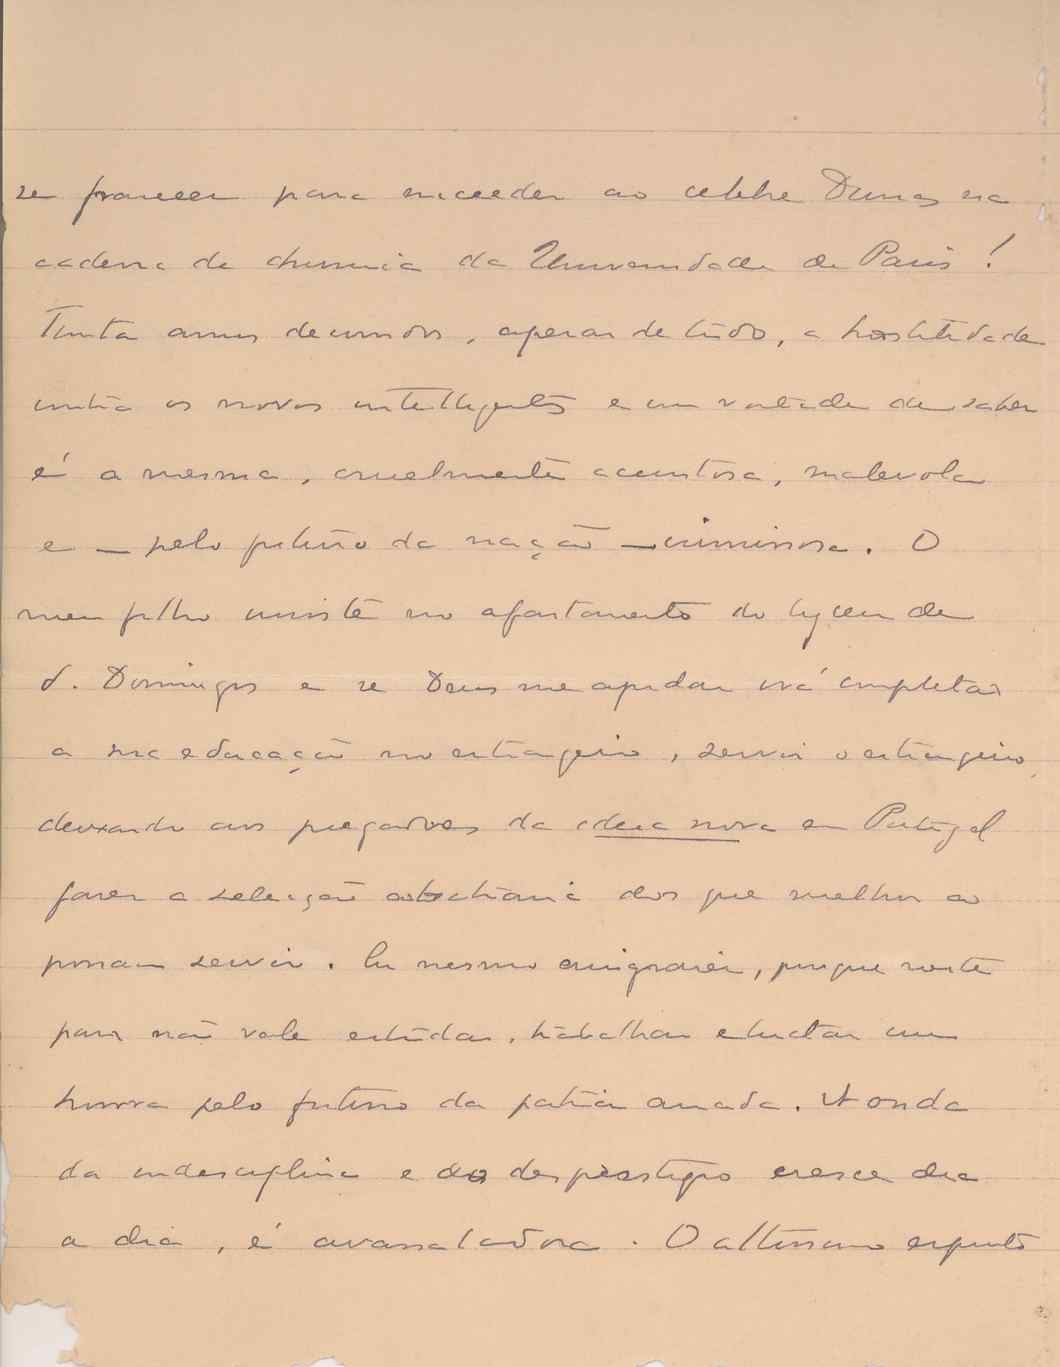 se francez para succeder ao celebre Dumas na
cadeira de chimica da Universidade de Paris!
Trinta annos decorridos, apesar de tudo, a hostilidade
contra os novos intelligentes e com vontade de saber
é a mesma, cruelmente acintosa, malevola
e — pelo futuro da nação — criminosa. O
meu filho insiste no afastamento do lyceu de
S. Domingos e se Deus me ajudar irá completar
a sua educação no estrangeiro, servir o estrangeiro,
deixando aos pregadores da ideia nova em Portugal
fazer a selecção dos que melhor as
possam servir. Eu mesmo emigrarei, porque neste
paiz não vale estudar, trabalhar e luctar com
honra pelo futuro da patria amada. A onda
da indisciplina e do desprestigio cresce dia
a dia, é avassaladora. O altissimo espirito